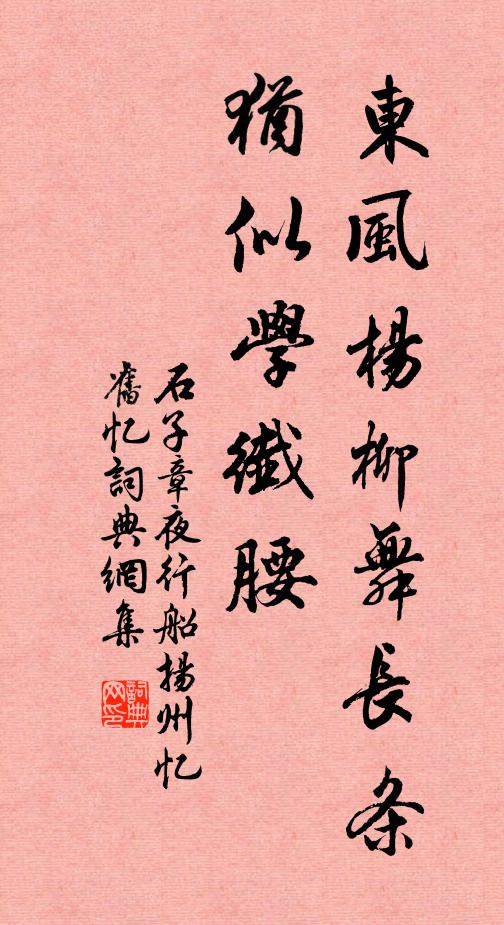 東風楊柳舞長条
猶似學纖腰
石子章夜行船揚州忆
舊忆詞典網集
詞典
网印